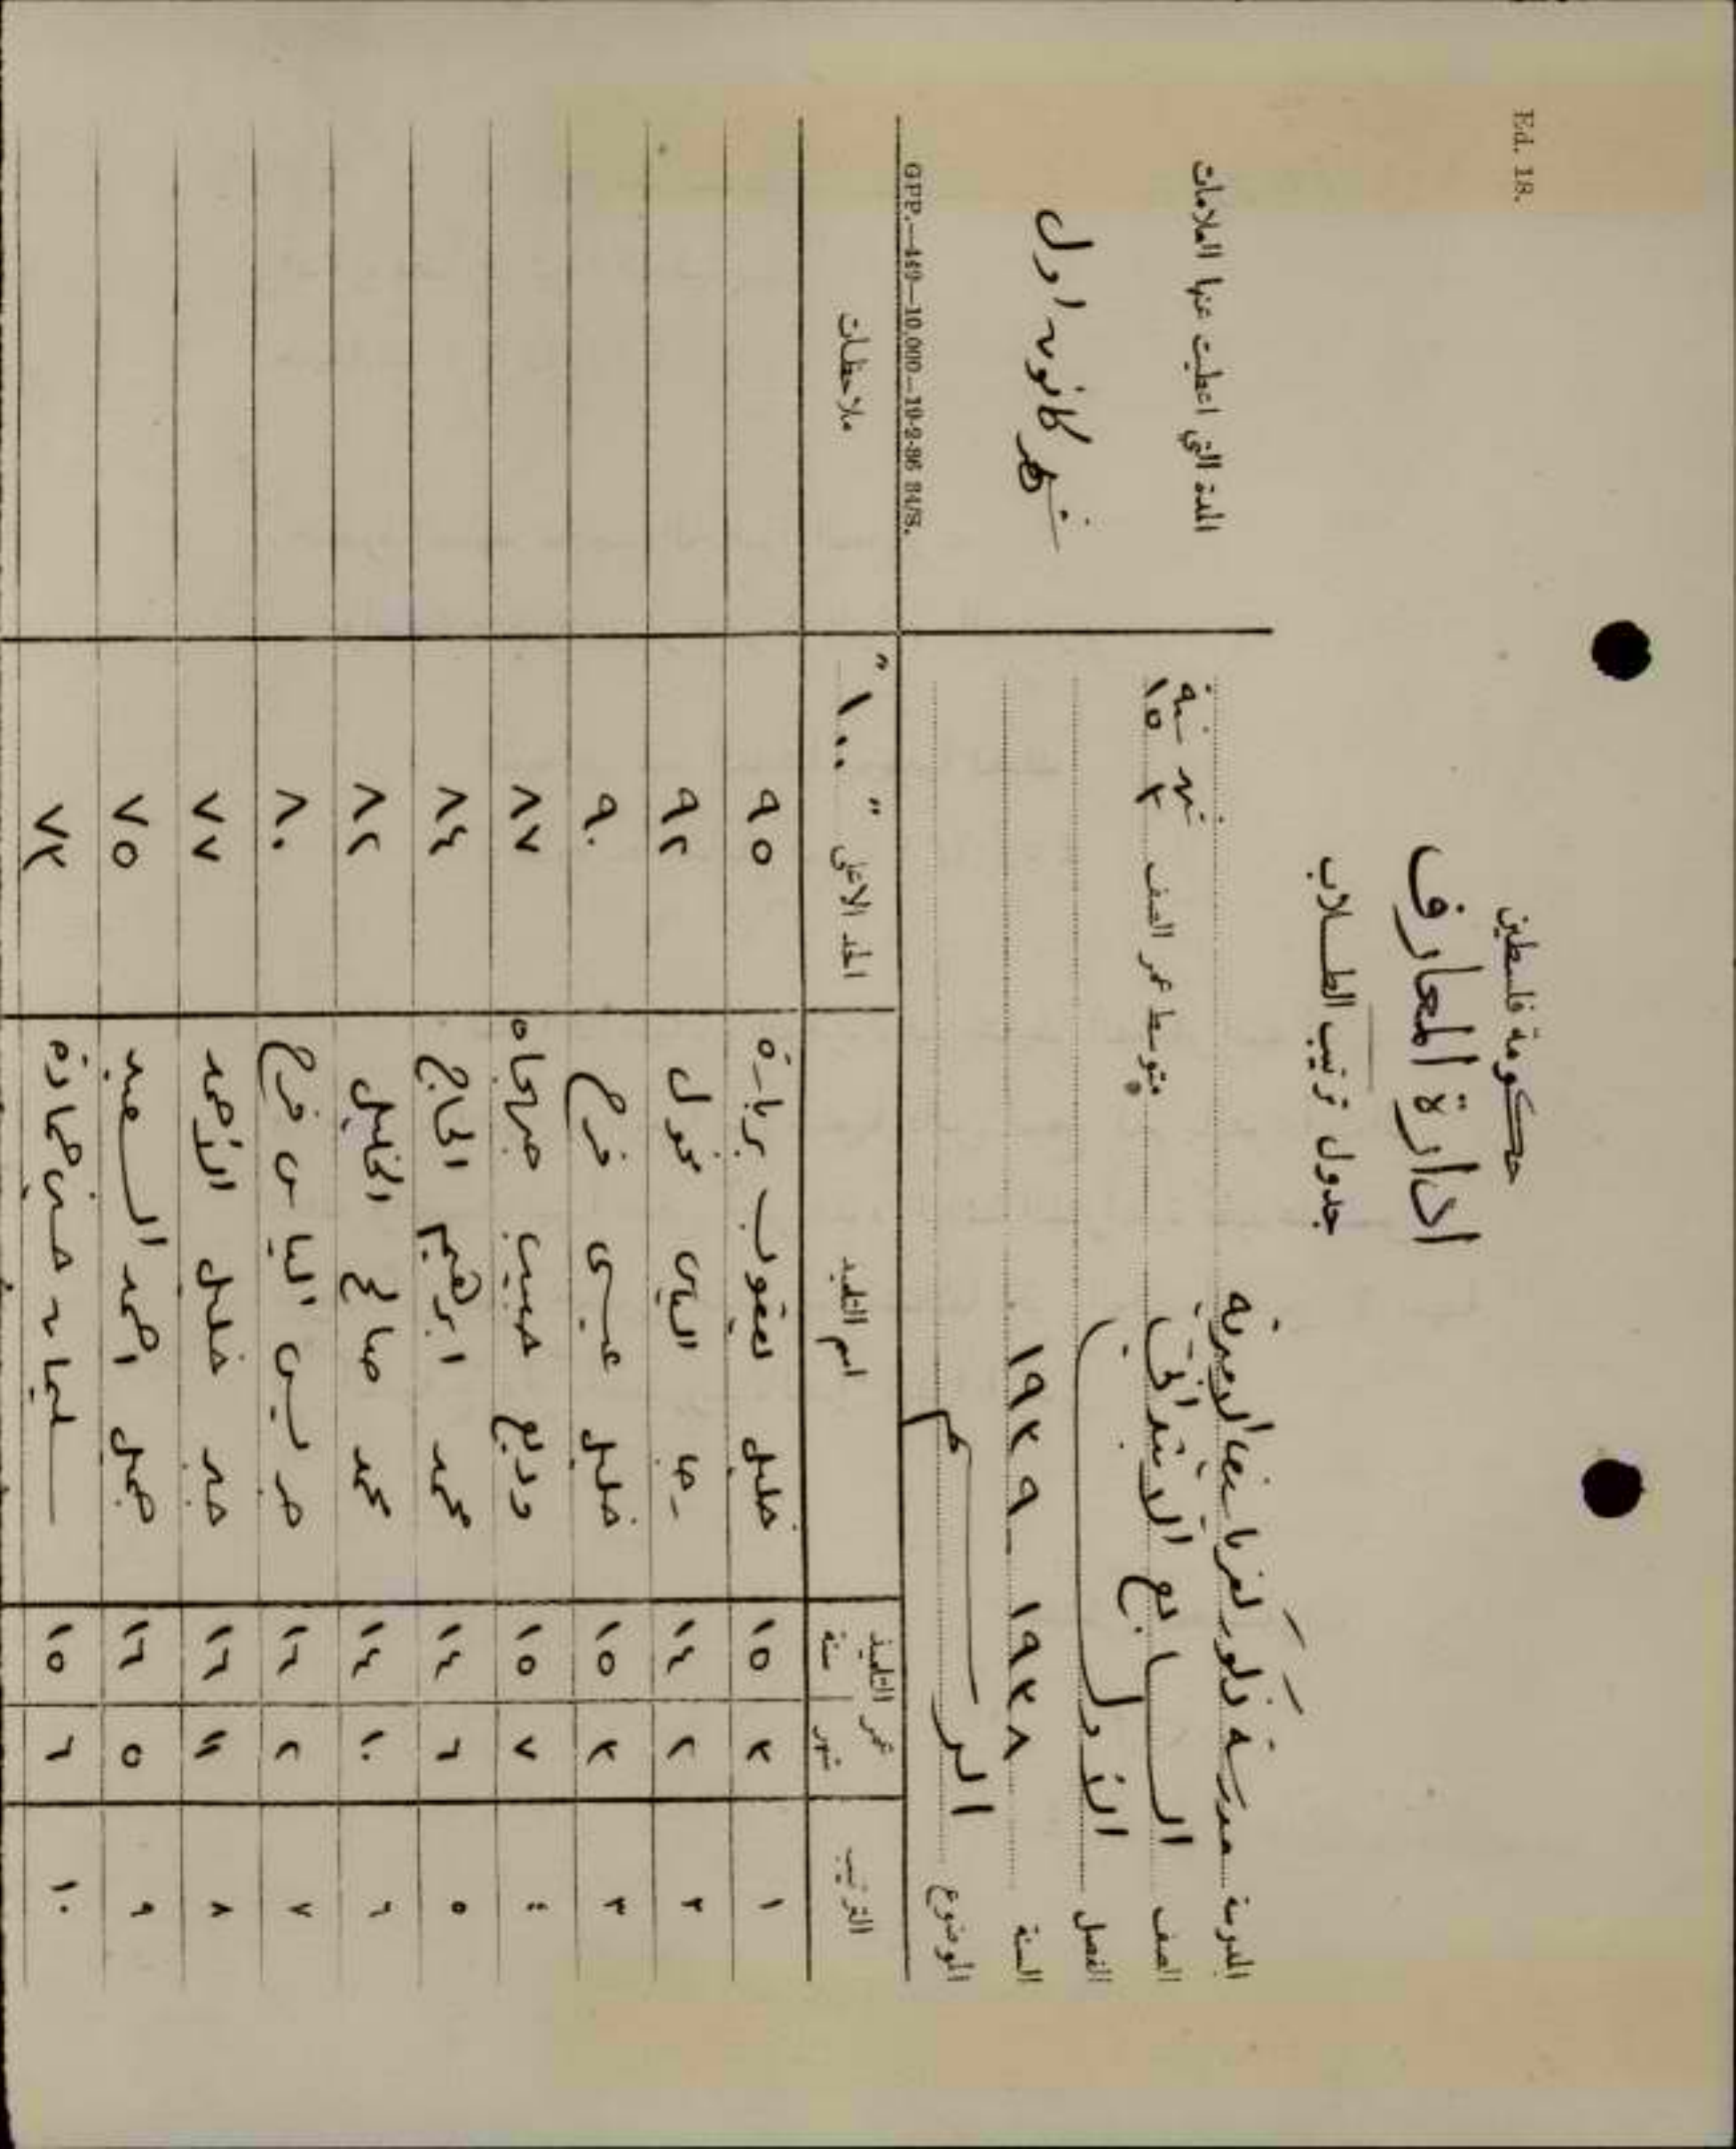 Ed. 18.
حكومة فلسطين
ادارة المعارف
جدول ترتيب الطلاب
المدرسة مدرسة ذكور كفرياسيف الاميرية
الصف السابع الابتدائي متوسط عمر الصف شهر ٣ سنة ١٥
الفصل الأول
السنة ١٩٣٨ - ١٩٣٩
الموضوع الرسم
المدة التي اعطيت عنها العلامات
شهر كانون اول
GPP.—449—10,000—19-2-36 84/S.
الترتيب عمر التلميذ شهر سنة اسم التلميذ الحد الاعلى " ١٠٠ " ملاحظات
١ ٣ ١٥ خليل يعقوب بربارة ٩٥
٢ ٢ ١٤ رجا الياس مخول ٩٢
٣ ٣ ١٥ خليل عيسى فرح ٩٠
٤ ٧ ١٥ وديع حبيب ٨٧
٥ ٦ ١٤ محمد ابرهيم الحاج ٨٤
٦ ١٠ ١٤ محمد صالح الخليل ٨٢
٧ ٢ ١٦ جريس الياس فرح ٨٠
٨ ١١ ١٦ جبر خليل الأحمد ٧٧
٩ ٥ ١٦ جميل احمد السعيد ٧٥
١٠ ٦ ١٥ سليمان حسن حمادة ٧٣